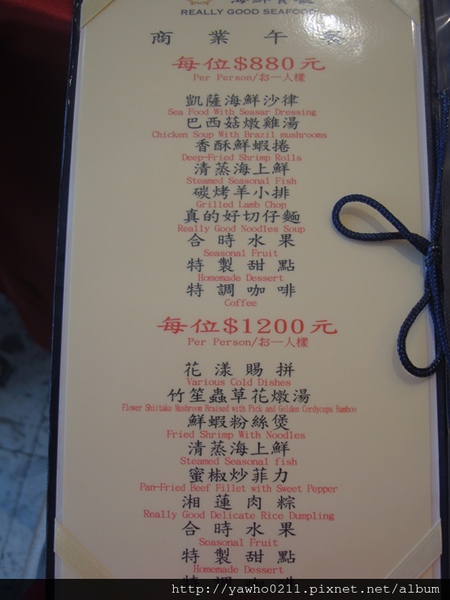 REALLY GOOD SEAFOOD
商業午餐
每位$880元
Per Person/お一人樣
凱薩海鮮沙律
Sea Food With Seasar Dressing
巴西菇燉雞湯
Chicken Soup With Brazil mushrooms
香酥鮮蝦捲
Deep-Fried Shrimp Rolls
清蒸海上鮮
Steamed Seasonal Fish
碳烤羊小排
Grilled Lamb Chop
真的好切仔麵
Really Good Noodles Soup
合時水果
Seasonal Fruit
特製甜點
Homemade Dessert
特調咖啡
Coffee
每位$1200元
Per Person/お一人樣
花漾賜拼
Various Cold Dishes
竹笙蟲草花燉湯
Flower Shiitake Mushroom Braised with Pick and Golden Cordyceps Bamboo
鮮蝦粉絲煲
Fried Shrimp With Noodles
清蒸海上鮮
Steamed Seasonal fish
蜜椒炒菲力
Pan-Fried Beef Fillet with Sweet Pepper
湘蓮肉粽
Really Good Delicate Rice Dumpling
合時水果
Seasonal Fruit
特製甜點
Homemade Dessert
http://yawho0211.pixnet.net/album